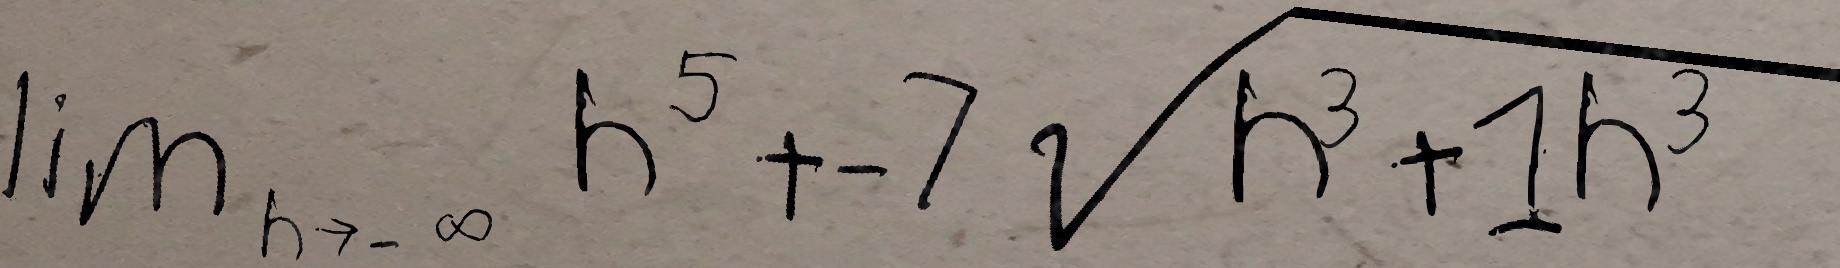 \lim_{h \to -\infty} h^5 + -7 \sqrt{h^3 + 1h^3}